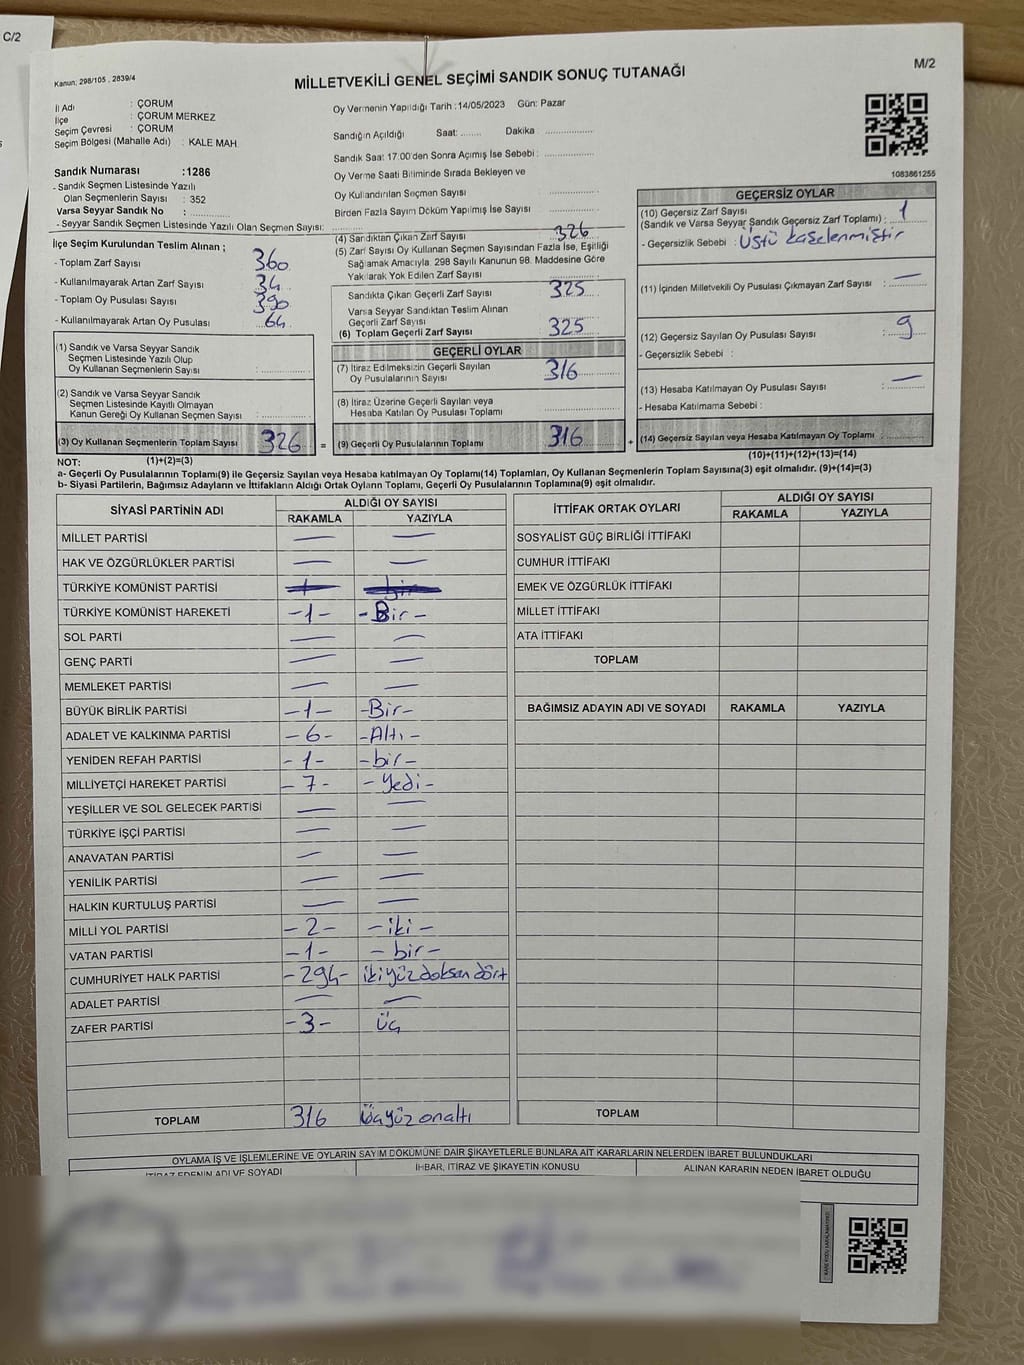 C/2
Kanun: 298/105 , 2839/4
MİLLETVEKİLİ GENEL SEÇİMİ SANDIK SONUÇ TUTANAĞI
M/2
İl Adı : ÇORUM
İlçe : ÇORUM MERKEZ
Seçim Çevresi : ÇORUM
Seçim Bölgesi (Mahalle Adı) : KALE MAH.
Sandık Numarası :1286
- Sandık Seçmen Listesinde Yazılı
Olan Seçmenlerin Sayısı : 352
Varsa Seyyar Sandık No :
- Seyyar Sandık Seçmen Listesinde Yazılı Olan Seçmen Sayısı:
Oy Vermenin Yapıldığı Tarih :14/05/2023 Gün: Pazar
Sandığın Açıldığı Saat: ....... Dakika ...............
Sandık Saat 17:00'den Sonra Açımış İse Sebebi :
Oy Verme Saati Bitiminde Sırada Bekleyen ve
Oy Kullandırılan Seçmen Sayısı
Birden Fazla Sayım Döküm Yapılmış İse Sayısı
1083861255
İlçe Seçim Kurulundan Teslim Alınan ;
- Toplam Zarf Sayısı 360
- Kullanılmayarak Artan Zarf Sayısı 34
- Toplam Oy Pusulası Sayısı 390
- Kullanılmayarak Artan Oy Pusulası 64
(1) Sandık ve Varsa Seyyar Sandık
Seçmen Listesinde Yazılı Olup
Oy Kullanan Seçmenlerin Sayısı :
(2) Sandık ve Varsa Seyyar Sandık
Seçmen Listesinde Kayıtlı Olmayan
Kanun Gereği Oy Kullanan Seçmen Sayısı :
(3) Oy Kullanan Seçmenlerin Toplam Sayısı 326 =
(1)+(2)=(3)
(4) Sandıktan Çıkan Zarf Sayısı 326
(5) Zarf Sayısı Oy Kullanan Seçmen Sayısından Fazla İse, Eşitliği
Sağlamak Amacıyla. 298 Sayılı Kanunun 98. Maddesine Göre
Yakılarak Yok Edilen Zarf Sayısı
Sandıkta Çıkan Geçerli Zarf Sayısı 325
Varsa Seyyar Sandıktan Teslim Alınan
Geçerli Zarf Sayısı
(6) Toplam Geçerli Zarf Sayısı 325
GEÇERLİ OYLAR
(7) İtiraz Edilmeksizin Geçerli Sayılan
Oy Pusulalarının Sayısı 316
(8) İtiraz Üzerine Geçerli Sayılan veya
Hesaba Katılan Oy Pusulası Toplamı
(9) Geçerli Oy Pusulalarının Toplamı 316 +
GEÇERSİZ OYLAR
(10) Geçersiz Zarf Sayısı
(Sandık ve Varsa Seyyar Sandık Geçersiz Zarf Toplamı) : 1
- Geçersizlik Sebebi : Üstü kaşelenmiştir
(11) İçinden Milletvekili Oy Pusulası Çıkmayan Zarf Sayısı : —
(12) Geçersiz Sayılan Oy Pusulası Sayısı : 9
- Geçersizlik Sebebi :
(13) Hesaba Katılmayan Oy Pusulası Sayısı : —
- Hesaba Katılmama Sebebi :
(14) Geçersiz Sayılan veya Hesaba Katılmayan Oy Toplamı :
(10)+(11)+(12)+(13)=(14)
NOT:
a- Geçerli Oy Pusulalarının Toplamı(9) ile Geçersiz Sayılan veya Hesaba katılmayan Oy Toplamı(14) Toplamları, Oy Kullanan Seçmenlerin Toplam Sayısına(3) eşit olmalıdır. (9)+(14)=(3)
b- Siyasi Partilerin, Bağımsız Adayların ve İttifakların Aldığı Ortak Oyların Toplamı, Geçerli Oy Pusulalarının Toplamına(9) eşit olmalıdır.
SİYASİ PARTİNİN ADI ALDIĞI OY SAYISI
RAKAMLA YAZIYLA
MİLLET PARTİSİ — —
HAK VE ÖZGÜRLÜKLER PARTİSİ — —
TÜRKİYE KOMÜNİST PARTİSİ
TÜRKİYE KOMÜNİST HAREKETİ -1- -Bir-
SOL PARTİ — —
GENÇ PARTİ — —
MEMLEKET PARTİSİ — —
BÜYÜK BİRLİK PARTİSİ -1- -Bir-
ADALET VE KALKINMA PARTİSİ -6- -Altı-
YENİDEN REFAH PARTİSİ -1- -bir-
MİLLİYETÇİ HAREKET PARTİSİ -7- -Yedi-
YEŞİLLER VE SOL GELECEK PARTİSİ — —
TÜRKİYE İŞÇİ PARTİSİ — —
ANAVATAN PARTİSİ — —
YENİLİK PARTİSİ — —
HALKIN KURTULUŞ PARTİSİ — —
MİLLİ YOL PARTİSİ -2- -iki-
VATAN PARTİSİ -1- -bir-
CUMHURİYET HALK PARTİSİ -294- ikiyüzdoksandört
ADALET PARTİSİ — —
ZAFER PARTİSİ -3- üç
TOPLAM 316 Üçyüzonaltı
İTTİFAK ORTAK OYLARI ALDIĞI OY SAYISI
RAKAMLA YAZIYLA
SOSYALİST GÜÇ BİRLİĞİ İTTİFAKI
CUMHUR İTTİFAKI
EMEK VE ÖZGÜRLÜK İTTİFAKI
MİLLET İTTİFAKI
ATA İTTİFAKI
TOPLAM
BAĞIMSIZ ADAYIN ADI VE SOYADI RAKAMLA YAZIYLA
TOPLAM
OYLAMA İŞ VE İŞLEMLERİNE VE OYLARIN SAYIM DÖKÜMÜNE DAİR ŞİKAYETLERLE BUNLARA AİT KARARLARIN NELERDEN İBARET BULUNDUKLARI
İTİRAZ EDENİN ADI VE SOYADI İHBAR, İTİRAZ VE ŞİKAYETİN KONUSU ALINAN KARARIN NEDEN İBARET OLDUĞU